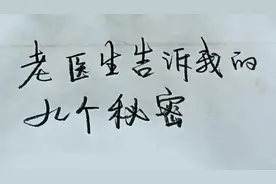 老医生告诉我的
九个秘密